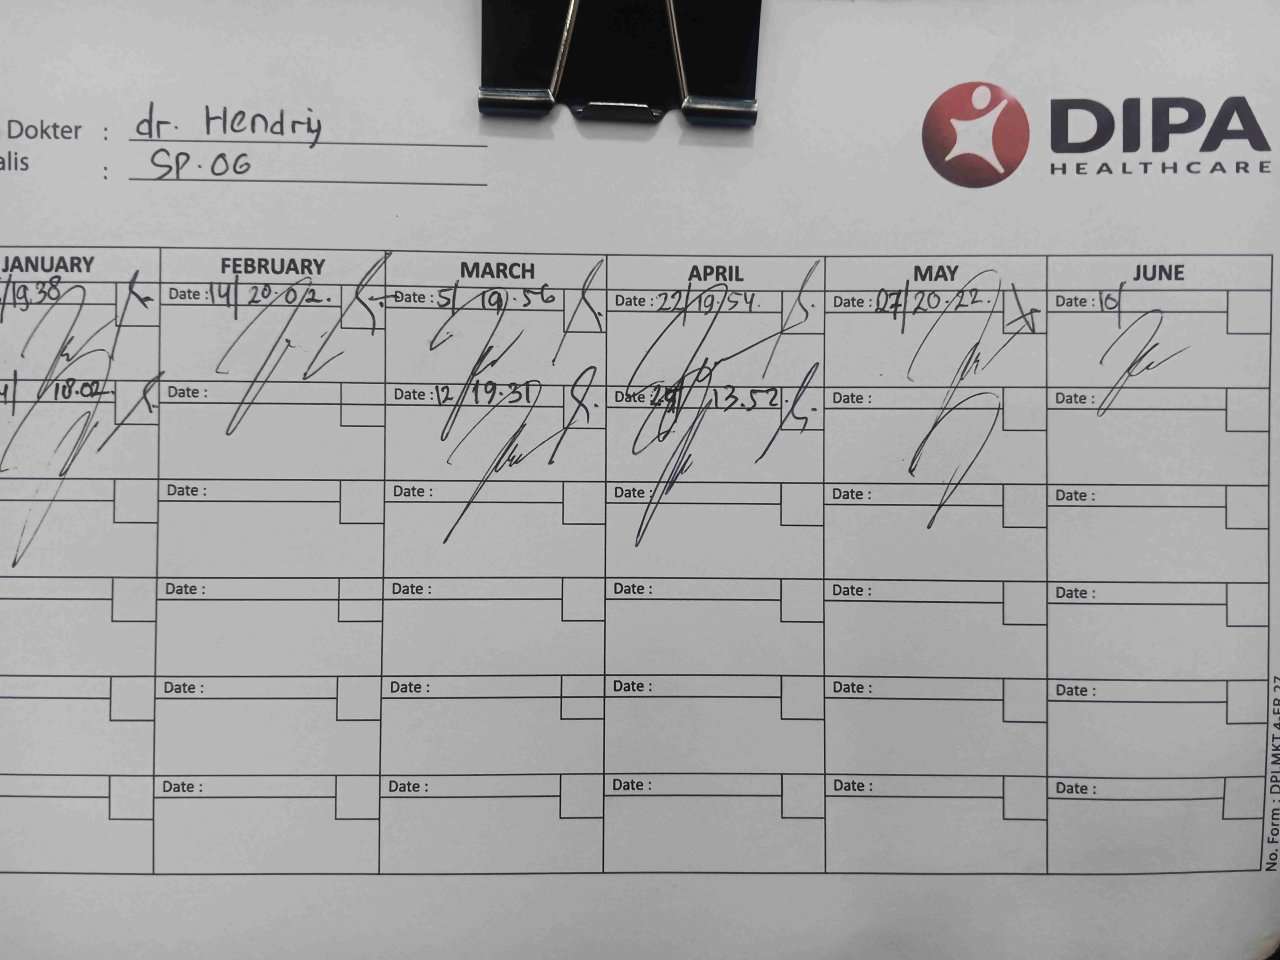 Dokter : dr. Hendriy
alis : SP.OG
DIPA
HEALTHCARE
JANUARY FEBRUARY MARCH APRIL MAY JUNE
/19.38 Date : 14/ 20.02. Date : 5/ 19.56 Date : 22/19.54. Date : 27/20.22. Date : 10/
/ 18.02 Date : Date : 12 19.31 Date : 29/ 13.52. Date : Date :
Date : Date : Date : Date : Date :
Date : Date : Date : Date : Date :
Date : Date : Date : Date : Date :
Date : Date : Date : Date : Date :
No. Form : DPI.MKT.4-FR.27